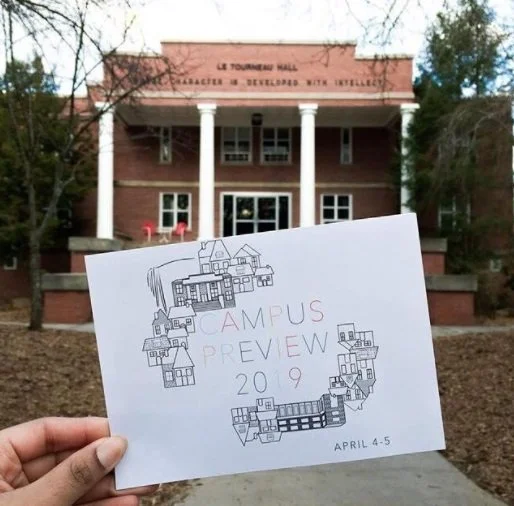 LE TOURNEAU HALL
WHERE CHARACTER IS DEVELOPED WITH INTELLECT
CAMPUS
PREVIEW
2019
APRIL 4-5